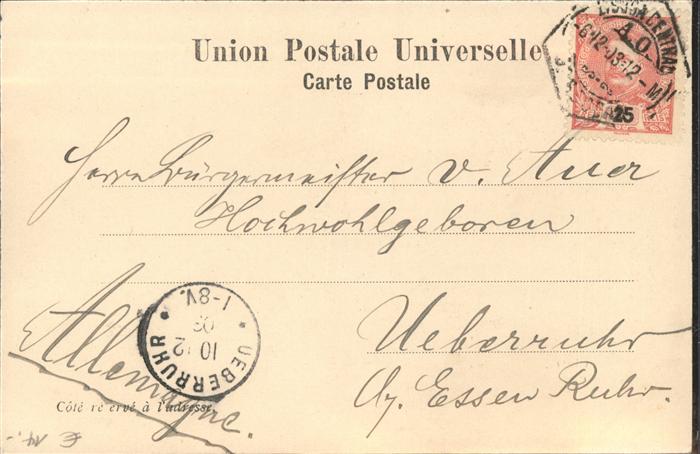 Union Postale Universelle
Carte Postale
LISBOA CENTRAL
A.O.
-6·12·03·12-M
25
REIS
Herrn Bürgermeister v. Auer
Hochwohlgeboren
Ueberruhr
By. Essen Ruhr.
Allemagne.
UEBERRUHR
10 12
03
1-8V.
Côté re ervé à l'adresse
€ 14.-